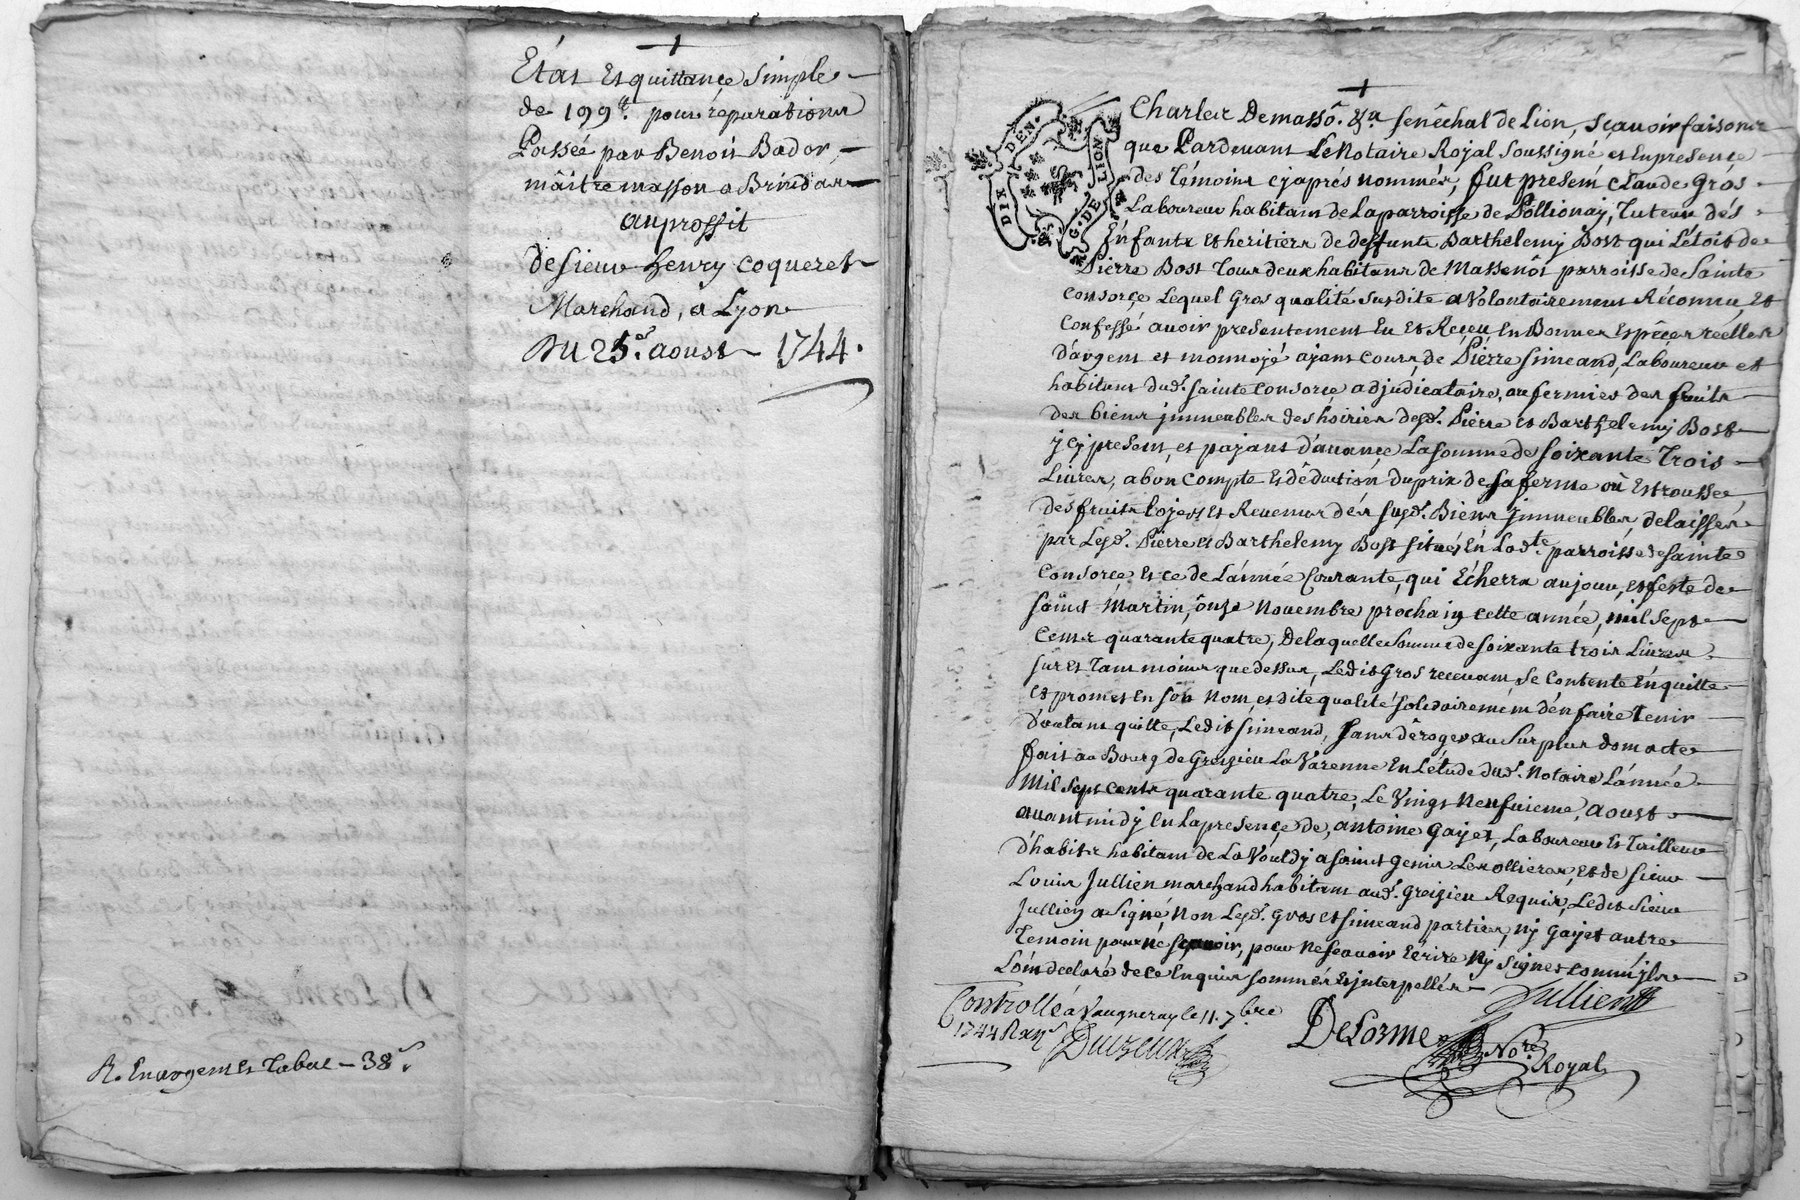 Estat Et quittance Simple
de 199# pour reparations
Passée par Benoit Bador,
maître masson a Brindas
au proffit
de sieur henry Coqueret
Marchand, a Lyon
Du 25e. aoust 1744.
R. En argent Et Tabac - 38s.
DIX DEN.
G. DE LION
Charles Demasso &a. senêchal de Lion, sçavoir faisons
que Pardevant Le Notaire Royal Soussigné et En presence
des Témoins cy aprés nommés, fut present Claude Gros
Laboureur habitant de La parroisse de Pollionay, Tuteur dés
Enfants et heritiers de deffunts Barthelemy Bost qui L'étoit de
Pierre Bost Tous deux habitans de Massenôt parroisse de Sainte
Consorçe Lequel Gros qualité Susdite a Volontairement Réconnu, Et
Confessé avoir presentement Eu Et Reçeu En Bonnes Espêces réelles
d'argent et monnoyé ayant Cours, de Piérre Simeand, Laboureur et
habitant dud. Sainte Consorce adjudicataire, ou fermier des fruits
des biens jmmeubles des hoiries desd. Piérre et Barthelemy Bost
jcy present, et payant d'avançe La somme de soixante Trois
Livres, a bon Compte Et déduction du prix de sa ferme ou Estrousse
des fruits Loyers Et Revenus dés susd. Biens jmmeubles delaissés
par Lesd. Pierre et Barthelemy Bost situés En Lad.te parroisse de Sainte
Consorce Et ce de L'année Courante, qui Echerra au jour, et feste de
saint Martin, onze Novembre prochain cette année, mil sept
Cents quarante quatre, De laquelle somme de soixante trois Livres
sur et Tant moins que dessus, Ledit Gros recevant, se Contente En quitte
Et promet En son Nom, et dite qualité solidairement d'én faire Tenir
d'autant quitte, Ledit Simeand, sans déroger au Surplus dont acte
fait au Bourg de Greizieu La Varenne En L'étude dud. Notaire L'année
Mil sept cents quarante quatre, Le Vingt Neufvieme, aoust
avant midy En La presençe de, antoine Gayet, Laboureur Et Tailleur
d'habits habitant de La Vouldy a saint Genis Les ollieres, et de sieur
Louis Jullien marchand habitant aud. Greizieu Requis, Ledit sieur
Jullien a signé, Non Lesd. Gros et Simeand parties, ny Gayet autre
Temoin pour Né sçavoir, pour Ne sçavoir Ecrire Ny signer comm'jls
L'ont declaré de ce Enquis sommés Et jnterpellés
Jullien
Controllé à Vaugneray le 11. 7bre
1744
DeLorme
No.re
Royal